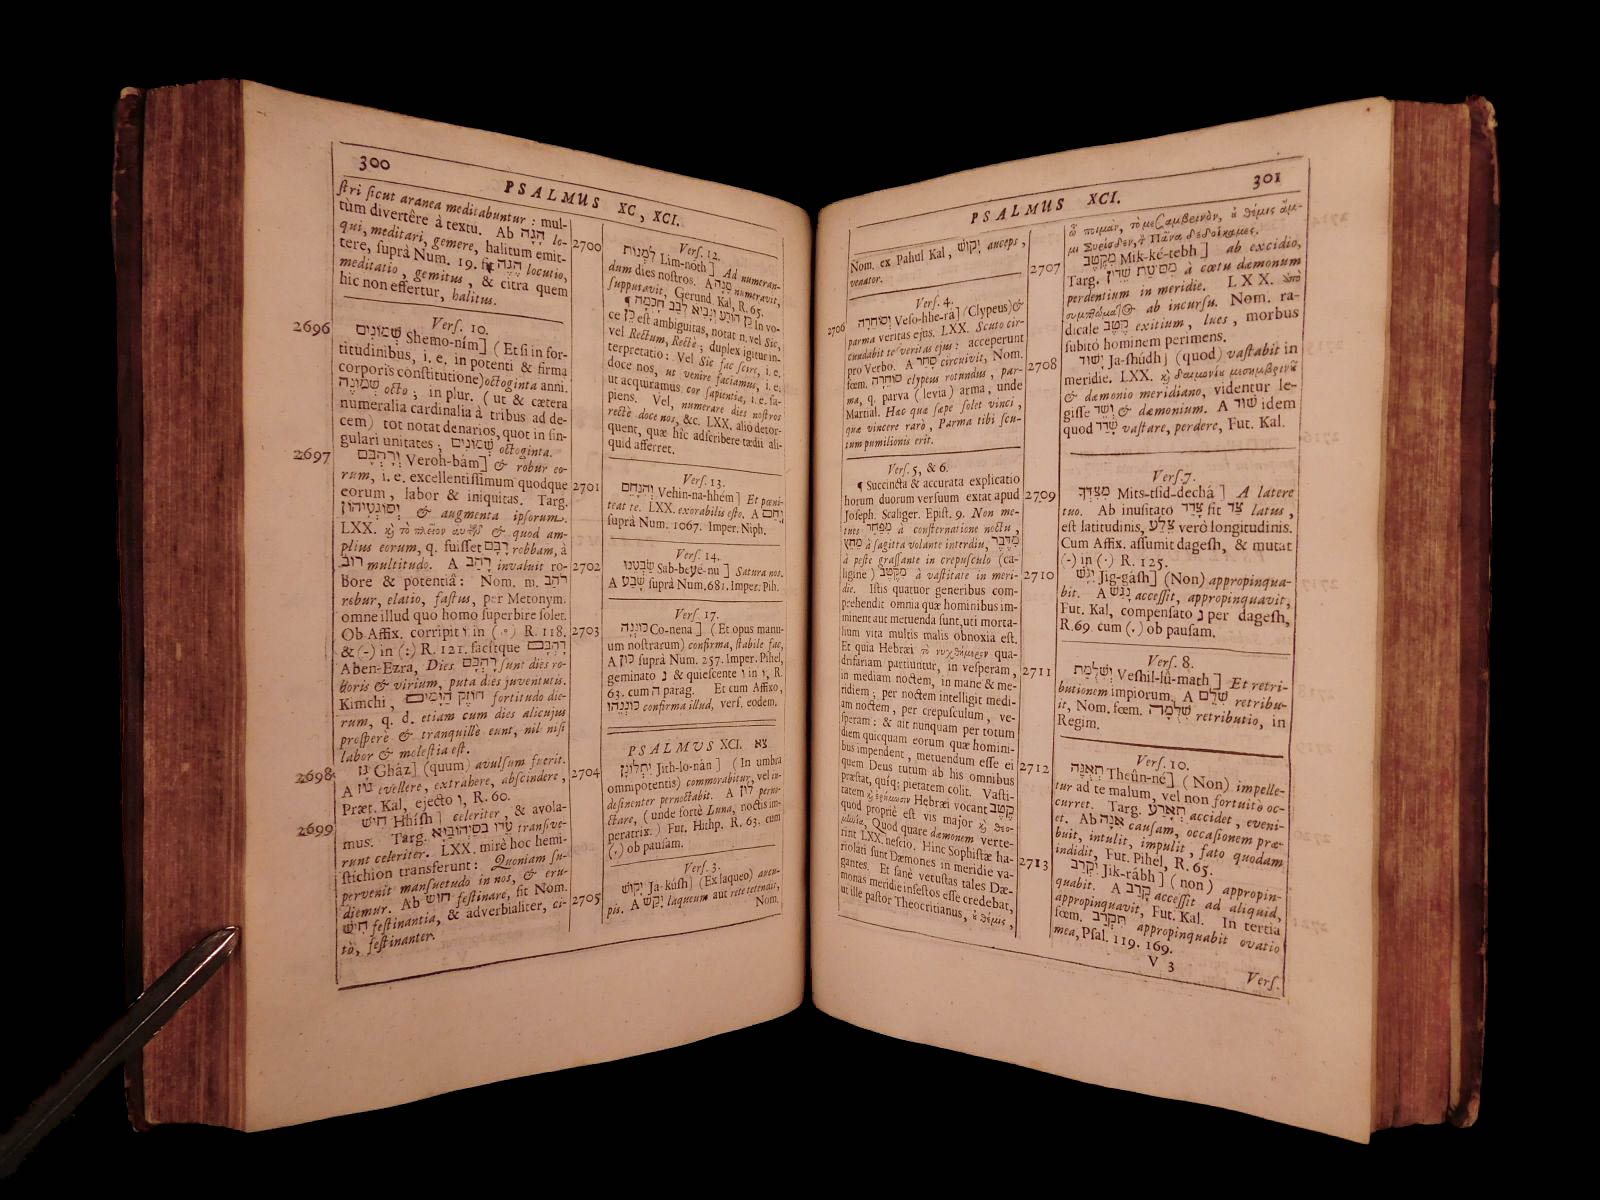 300
PSALMUS XC, XCI.
ſtri ſicut aranea meditabuntur : mul-
tùm divertêre à textu. Ab הָגָה lo-
qui, meditari, gemere, halitum emit-
tere, ſuprà Num. 19. fit הֶגֶה locutio,
meditatio, gemitus, & citra quem
hic non effertur, halitus.
Verſ. 10.
2696
שְׁמוֹנִים Shemo-ním] (Et ſi in for-
titudinibus, i. e. in potenti & firma
corporis conſtitutione) octoginta anni.
שְׁמוֹנָה octo ; in plur. ( ut & cætera
numeralia cardinalia à tribus ad de-
cem) tot notat denarios, quot in ſin-
gulari unitates ; שְׁמוֹנִים octoginta.
2697
וְרָהְבָּם Veroh-bám] & robur eo-
rum, i. e. excellentiſſimum quodque
eorum, labor & iniquitas. Targ.
& augmenta ipſorum.
LXX. & quod am-
plius eorum, q. fuiſſet רֻבָּם robbam, à
רוֹב multitudo. A רָהַב invaluit ro-
bore & potentiâ: Nom. m. רֹהַב
robur, elatio, faſtus, per Metonym.
omne illud quo homo ſuperbire ſolet.
Ob Affix. corripit ו in R. 118.
& (-) in (:) R. 121. facitque רָהְבָּם
Aben-Ezra, Dies רָהְבָּם ſunt dies ro-
boris & virium, puta dies juventutis.
Kimchi, חוֹזֶק הַיָּמִים fortitudo die-
rum, q. d. etiam cum dies alicujus
proſperè & tranquillè eunt, nil niſi
labor & moleſtia eſt.
2698
גָּז Gház] (quum) avulſum fuerit.
A גּוּז evellere, extrahere, abſcindere,
Præt. Kal, ejecto ו, R. 60.
2699
חִישׁ Hhíſh] celeriter, & avola-
mus. Targ. tranſive-
runt celeriter. LXX. mirè hoc hemi-
ſtichion transferunt : Quoniam ſu-
pervenit manſuetudo in nos, & eru-
diemur. Ab חוּשׁ feſtinare, fit Nom.
חִישׁ feſtinantia, & adverbialiter, ci-
tò, feſtinanter.
Verſ. 12.
2700
לִמְנוֹת Lim-nóth] Ad numeran-
dum dies noſtros. A מָנָה numeravit,
ſupputavit, Gerund Kal, R. 65.
¶ כֵּן הוֹדַע וְנָבִיא לְבַב חָכְמָה In vo-
ce כֵּן eſt ambiguitas, notat n. vel Sic,
vel Rectum, Rectè ; duplex igitur in-
terpretatio : Vel Sic fac ſcire, i. e.
doce nos, ut venire faciamus, i. e.
ut acquiramus cor ſapientiæ, i. e. ſa-
piens. Vel, numerare dies noſtros
rectè doce nos, &c. LXX. aliò detor-
quent, quæ hîc adſcribere tædii ali-
quid afferret.
Verſ. 13.
2701
וְהִנָּחֵם Vehin-na-hhém] Et pœni-
teat te. LXX. exorabilis eſto. A נָחַם
ſuprà Num. 1067. Imper. Niph.
Verſ. 14.
2702
שַׂבְּעֵנוּ Sab-beyé-nu] Satura nos.
A שָׂבַע ſuprà Num. 681. Imper. Pih.
Verſ. 17.
2703
כּוֹנְנָה Co-nená] (Et opus manu-
um noſtrarum) confirma, ſtabile fac,
A כּוּן ſuprà Num. 257. Imper. Pihel,
geminato נ & quieſcente ו in ו, R.
63. cum ה parag. Et cum Affixo,
כּוֹנְנֵהוּ confirma illud, verſ. eodem.
PSALMUS XCI. צא
2704
יִתְלוֹנָן Jith-lo-nán] (In umbra
omnipotentis) commorabitur, vel in-
deſinenter pernoctabit. A לוּן perno-
ctare, (unde fortè Luna, noctis im-
peratrix.) Fut. Hithp. R. 63. cum
(,) ob pauſam.
Verſ. 3.
2705
יָקוּשׁ Ja-kúſh] (Ex laqueo) aucu-
pis. A יָקַשׁ laqueum aut rete tetendit,
Nom.
PSALMUS XCI.
301
Nom. ex Pahul Kal, יָקוּשׁ auceps,
venator.
Verſ. 4.
2706
וְסוֹחֵרָה Veſo-hhe-rá] (Clypeus) &
parma veritas ejus. LXX. Scuto cir-
cundabit te veritas ejus : acceperunt
pro Verbo. A סָחַר circuivit, Nom.
fœm. סוֹחֵרָה clypeus rotundus, par-
ma, q. parva (levia) arma, unde
Martial. Hac quæ ſæpe ſolet vinci,
quæ vincere rarò, Parma tibi ſcu-
tum pumilionis erit.
Verſ. 5, & 6.
¶ Succincta & accurata explicatio
horum duorum verſuum extat apud
Joſeph. Scaliger. Epiſt. 9. Non me-
tues à conſternatione noctu,
à ſagitta volante interdiu,
à peſte graſſante in crepuſculo (ca-
ligine) à vaſtitate in meri-
die. Iſtis quatuor generibus com-
prehendit omnia quæ hominibus im-
minent aut metuenda ſunt, uti morta-
lium vita multis malis obnoxia eſt.
Et quia Hebræi τὸ νυχθήμερον qua-
drifariam partiuntur, in veſperam,
in mediam noctem, in mane & me-
ridiem ; per noctem intelligit medi-
am noctem, per crepuſculum, ve-
ſperam : & ait nunquam per totum
diem quicquam eorum quæ homini-
bus impendent, metuendum eſſe ei
quem Deus tutum ab his omnibus
præſtat, quiſq; pietatem colit. Vaſti-
tatem Hebræi vocant קֶטֶב
quod propriè eſt vis major
Quod quare dæmonem verte-
rint LXX. neſcio. Hinc Sophiſtæ ha-
riolati ſunt Dæmones in meridie va-
gantes. Et ſanè vetuſtas tales Dæ-
monas meridie infeſtos eſſe credebat,
ut ille paſtor Theocritianus, ὀ θέμις,
ὦ ποιμὰν, τὸ μεσαμβεινὸν, ὀ θέμις ἄμ-
μι Συρίσδεν, τ Πᾶνα δεδοίκαμες.
2707
מִקֶּטֶב Mik-ké-tebh] ab excidio,
Targ. à cœtu dæmonum
perdentium in meridie. LXX. ἀπὸ
ab incurſu. Nom. ra-
dicale קֶטֶב exitium, lues, morbus
ſubitò hominem perimens.
2708
יָשׁוּד Ja-ſhúdh] (quod) vaſtabit in
meridie. LXX. κ δαιμονίου μεσημβρινοῦ
& dæmonio meridiano, videntur le-
giſſe וְשֵׁד & dæmonium. A שׁוּד idem
quod שָׁדַד vaſtare, perdere, Fut. Kal.
Verſ. 7.
2709
מִצִּדְּךָ Mits-tſid-dechá] A latere
tuo. Ab inuſitato צָדַד fit צַד latus,
eſt latitudinis, צֵלָע verò longitudinis.
Cum Affix. aſſumit dageſh, & mutat
(-) in (.) R. 125.
2710
יִגָּשׁ Jig-gáſh] (Non) appropinqua-
bit. A נָגַשׁ acceſſit, appropinquavit,
Fut. Kal, compenſato נ per dageſh,
R. 69. cum (,) ob pauſam.
Verſ. 8.
2711
וְשִׁלֻּמַת Veſhil-lú-math] Et retri-
butionem impiorum. A שָׁלֵם retribu-
it, Nom. fœm. שִׁלֻּמָה retributio, in
Regim.
Verſ. 10.
2712
תְאֻנֶּה Theûn-né] (Non) impelle-
tur ad te malum, vel non fortuitò oc-
curret. Targ. תְאָרַע accidet, eveni-
et. Ab אָנָה cauſam, occaſionem præ-
buit, intulit, impulit, fato quodam
indidit, Fut. Pihel, R. 65.
2713
יִקְרַב Jik-rábh] (non) appropin-
quabit. A קָרַב acceſſit ad aliquid,
appropinquavit, Fut. Kal. In tertia
fœm. תִּקְרַב appropinquabit ovatio
mea, Pſal. 119. 169.
V 3
Verſ.